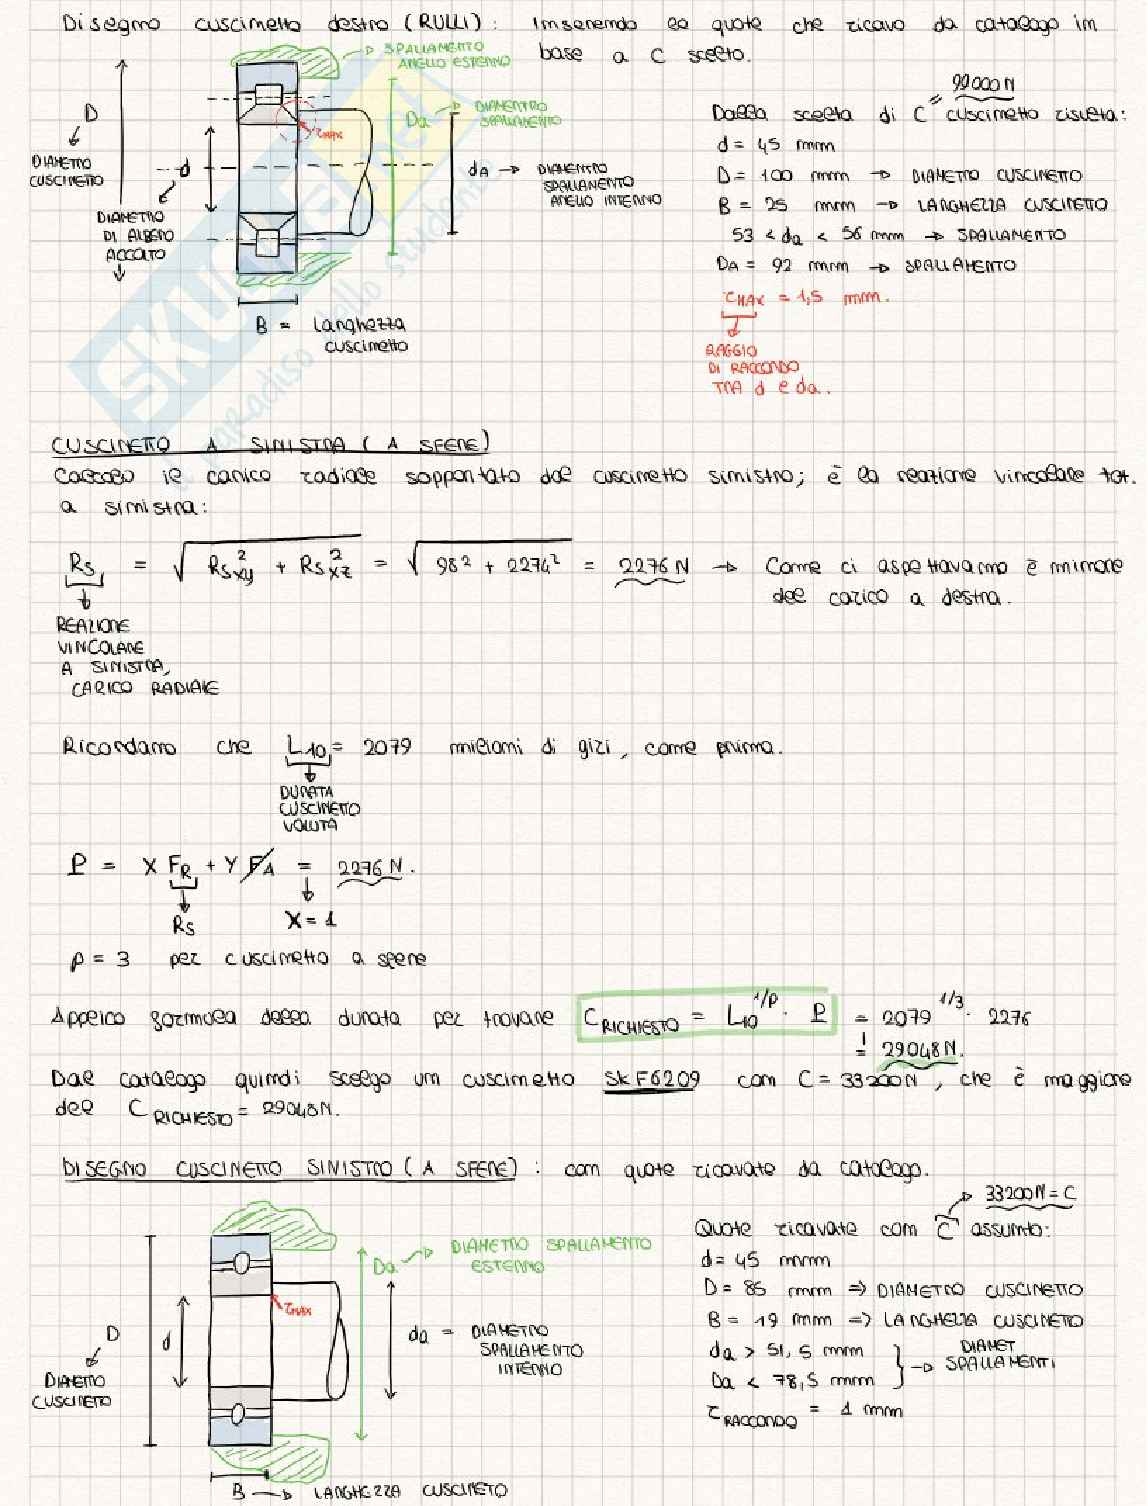 Disegno cuscinetto destro (RULLI): Inserendo le quote che ricavo da catalogo in
base a C scelto.
SPALLAMENTO
ANELLO ESTERNO
D
DIAMETRO
CUSCINETTO
d
DIAMETRO
DI ALBERO
ACCOLTO
rMAX
Da
DIAMENTRO
SPALLAMENTO
dA → DIAMENTRO
SPALLAMENTO
ANELLO INTERNO
B = Larghezza
cuscinetto
99000N
Dalla scelta di C cuscinetto risulta:
d = 45 mm
D = 100 mm → DIAMETRO CUSCINETTO
B = 25 mm → LARGHEZZA CUSCINETTO
53 < da < 56 mm → SPALLAMENTO
DA = 92 mm → SPALLAMENTO
rMAX = 1,5 mm.
RAGGIO
DI RACCORDO
TRA d e da.
CUSCINETTO A SINISTRA (A SFERE)
Calcolo il carico radiale sopportato dal cuscinetto sinistro; è la reazione vincolare tot.
a sinistra:
Rs = √(Rs²xy + Rs²xz) = √(98² + 2274²) = 2276 N → Come ci aspettavamo è minore
del carico a destra.
REAZIONE
VINCOLARE
A SINISTRA,
CARICO RADIALE
Ricordano che L10 = 2079 milioni di giri, come prima.
DURATA
CUSCINETTO
VOLUTA
P = X FR + Y FA = 2276 N.
Rs X = 1
p = 3 per cuscinetto a sfere
Applico formula della durata per trovare C RICHIESTO = L10^1/p · P = 2079^1/3 · 2276
= 29048 N.
Dal catalogo quindi scelgo un cuscinetto SKF6209 con C = 33200N, che è maggiore
del C RICHIESTO = 29048N.
DISEGNO CUSCINETTO SINISTRO (A SFERE): con quote ricavate da catalogo.
D
DIAMETRO
CUSCINETO
d
rMAX
Da → DIAMETRO SPALLAMENTO
ESTERNO
da = DIAMETRO
SPALLAMENTO
INTERNO
B → LARGHEZZA CUSCINETO
33200N = C
Quote ricavate con C assunto:
d = 45 mm
D = 85 mm ⇒ DIAMETRO CUSCINETO
B = 19 mm ⇒ LARGHEZZA CUSCINETO
da > 51,5 mm
Da < 78,5 mm
→ DIAMET
SPALLAMENTI
r RACCORDO = 1 mm
SKUOLA.net
il paradiso dello studente